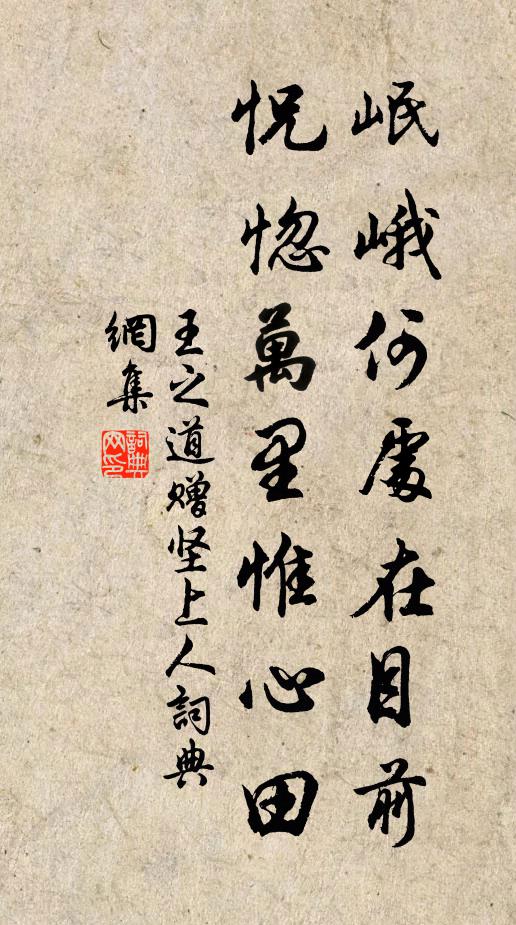 岷峨何處在目前
怳惚萬里惟心田
王之道贈坚上人詞典
網集
詞典网印